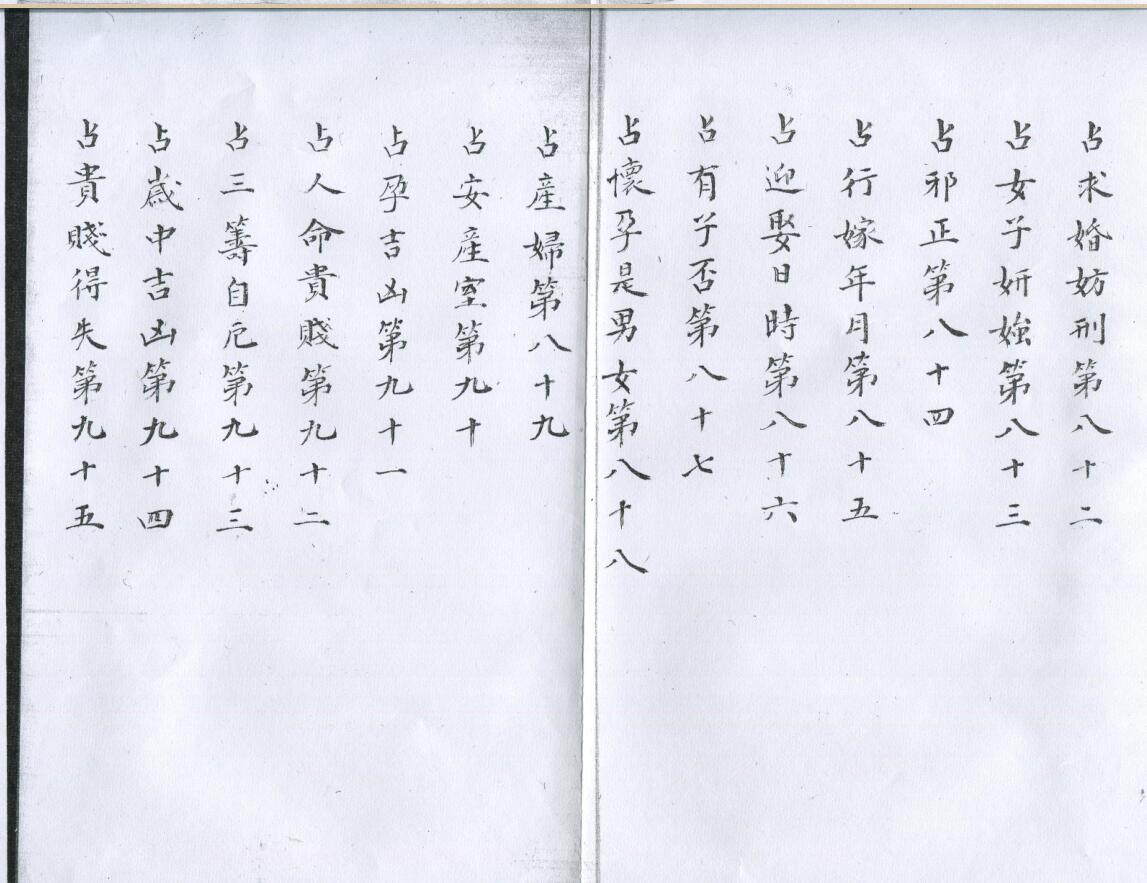 占求婚妨刑第八十二
占女子妍媸第八十三
占邪正第八十四
占行嫁年月第八十五
占迎娶日時第八十六
占有子否第八十七
占懷孕是男女第八十八
占產婦第八十九
占安產室第九十
占孕吉凶第九十一
占人命貴賤第九十二
占三籌自卮第九十三
占歲中吉凶第九十四
占貴賤得失第九十五